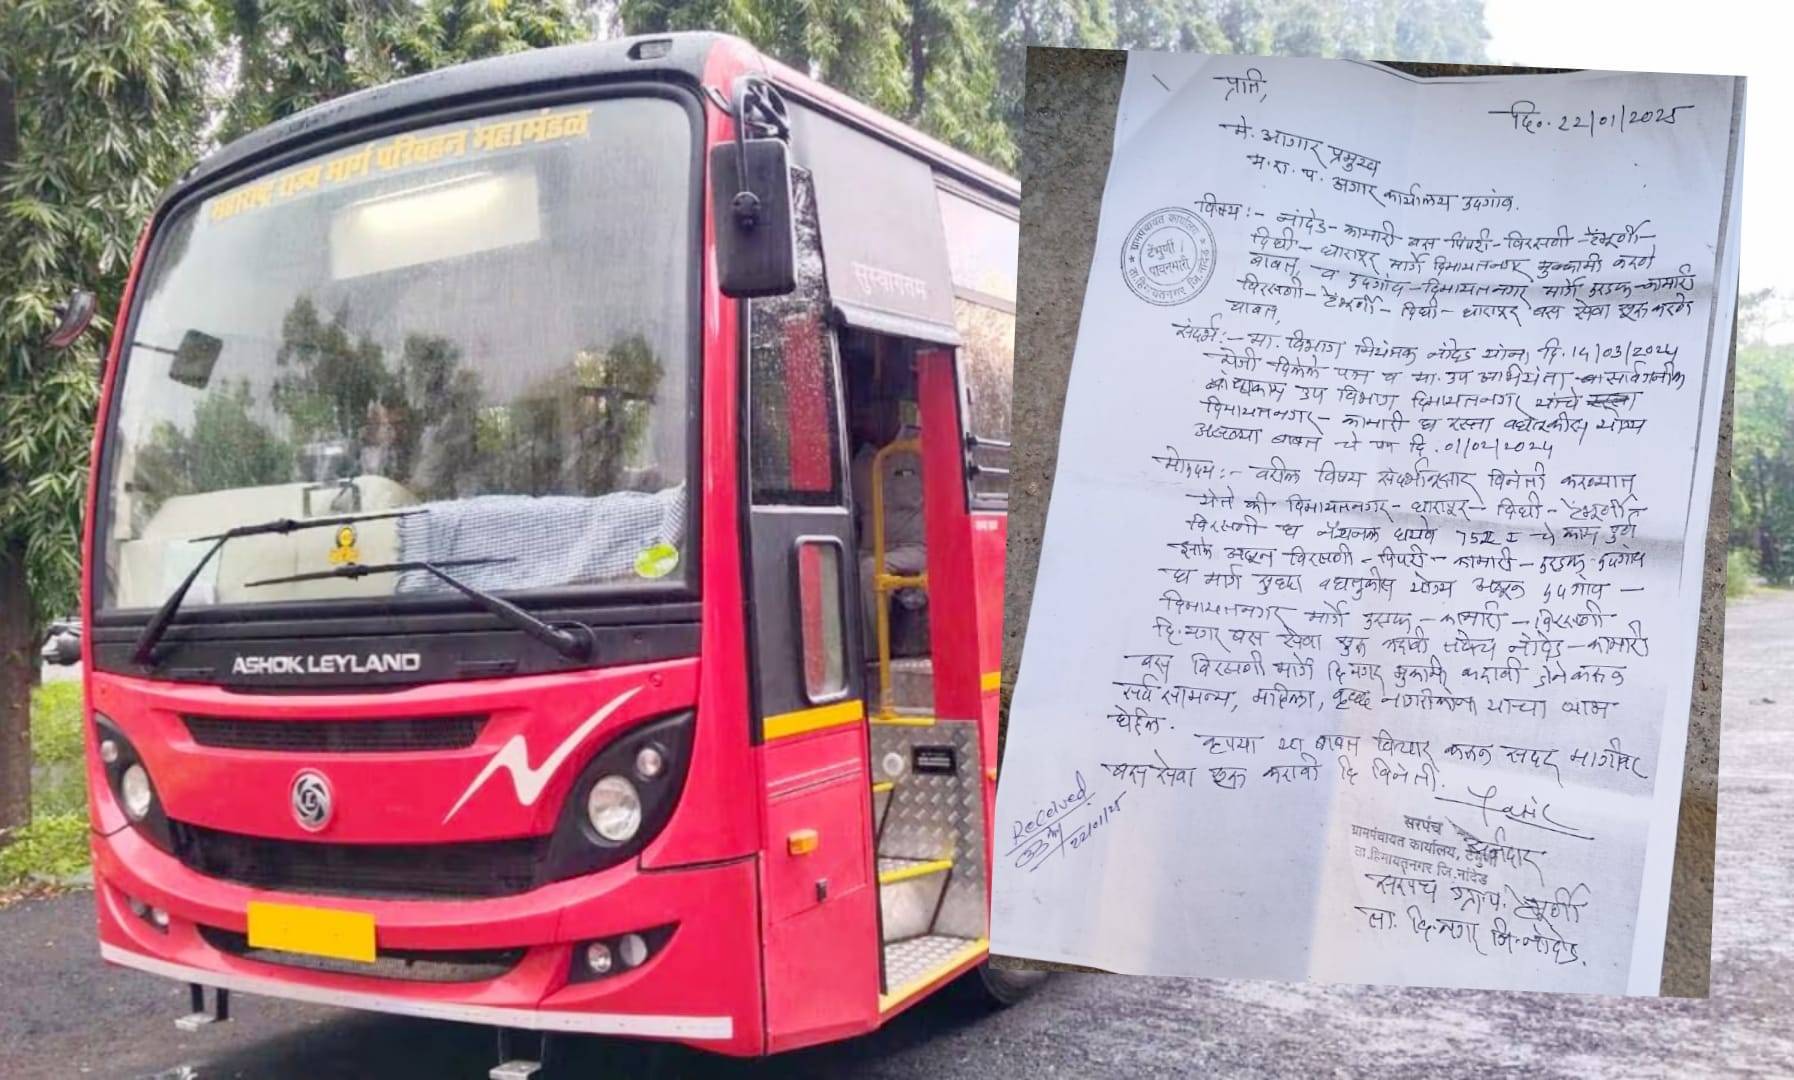 महाराष्ट्र राज्य मार्ग परिवहन महामंडळ
सुस्वागतम
ASHOK LEYLAND
प्रति,
दि. 22/01/2025
मे. आगार प्रमुख
म. रा. प. अगार कार्यालय हदगांव.
विषय :- नांदेड - कामारी बस पिंपरी - विरसणी - टेंभूर्णी -
दिघी - धारापूर मार्गे हिमायतनगर मुक्कामी करणे
बाबत, व हदगांव - हिमायतनगर मार्गे हरडफ - कामारी
विरसणी - टेंभूर्णी - दिघी - धारापूर बस सेवा सुरू करणे
बाबत,
ग्रामपंचायत कार्यालय
टेंभुर्णी /
पावनमारी
ता. हिमायतनगर जि. नांदेड
संदर्भ :- मा. विभाग नियंत्रक नांदेड यांना दि. 14/03/2024
रोजी दिलेले पत्र व मा. उप अभियंता सार्वजनीक
बांधकाम उप विभाग हिमायतनगर यांचे
हिमायतनगर - कामारी हा रस्ता वाहतुकीस योग्य
असल्या बाबत चे पत्र दि. 01/02/2024
महोदय :- वरील विषय संदर्भानुसार विनंती करण्यात
येते की हिमायतनगर - धारापूर - दिघी - टेंभूर्णी
विरसणी हा नॅशनल हायवे 752 I चे काम पुर्ण
झाले असून विरसणी - पिंपरी - कामारी - हरडफ - हदगांव
हा मार्ग सुध्दा वाहतुकीस योग्य असून हदगांव -
हिमायतनगर मार्गे हरडफ - कामारी - विरसणी
हि. नगर बस सेवा सुरू करावी तसेच नांदेड - कामारी
बस विरसणी मार्गे हि नगर मुक्कामी करावी जेनेकरून
सर्व सामान्य, महिला, वृध्द नागरीकांना याचा लाभ
घेईल.
कृपया या बाबत विचार करून सदर मार्गावर
बस सेवा सुरू करावी हि विनंती.
Received
22/01/25
सरपंच
ग्रामपंचायत कार्यालय, टेंभुर्णी
ता. हिमायतनगर जि. नांदेड
अर्जदार
सरपंच ग्रा. पं. टेंभूर्णी
ता. हि. नगर जि. नांदेड.